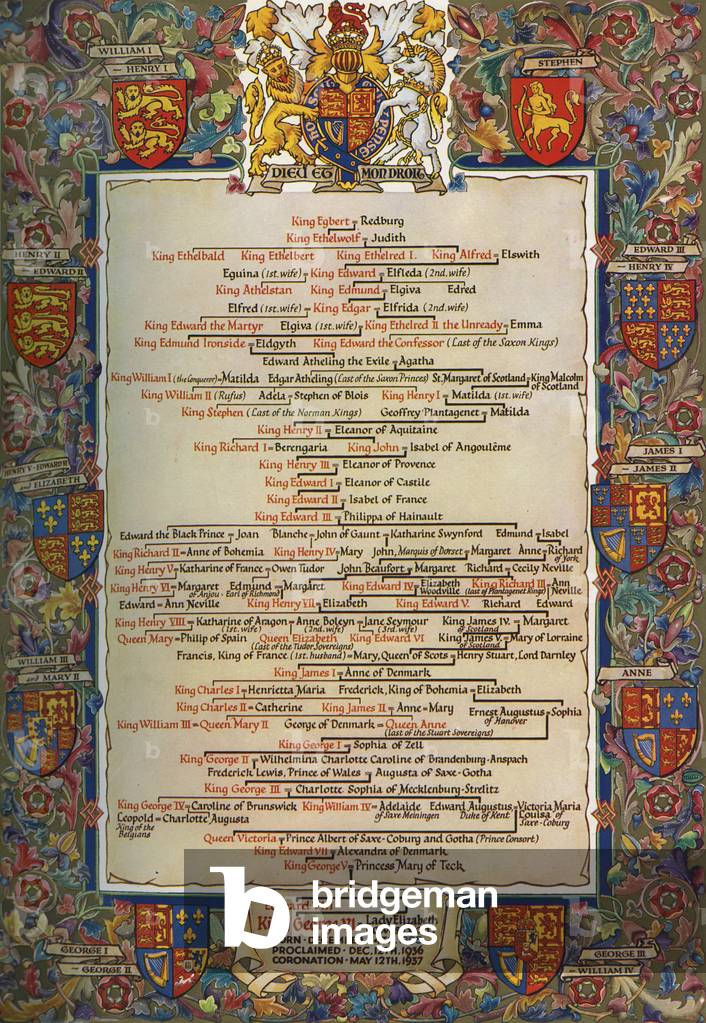 WILLIAM I
HENRY I
STEPHEN
HONI SOIT
PENSE
DIEU ET MON DROIT
HENRY II
EDWARD II
EDWARD III
HENRY IV
HENRY V - EDWARD VI
and ELIZABETH
JAMES I
JAMES II
WILLIAM III
and MARY II
ANNE
King Egbert = Redburg
King Ethelwolf = Judith
King Ethelbald King Ethelbert King Ethelred I. King Alfred = Elswith
Eguina (1st. wife) = King Edward = Elfleda (2nd. wife)
King Athelstan King Edmund = Elgiva Edred
Elfred (1st. wife) = King Edgar = Elfrida (2nd. wife)
King Edward the Martyr Elgiva (1st. wife) = King Ethelred II the Unready = Emma
King Edmund Ironside = Eldgyth King Edward the Confessor (Last of the Saxon Kings)
Edward Atheling the Exile = Agatha
King William I (the Conqueror) = Matilda Edgar Atheling (Last of the Saxon Princes) St. Margaret of Scotland = King Malcolm
of Scotland
King William II (Rufus) Adela = Stephen of Blois King Henry I = Matilda (1st. wife)
King Stephen (Last of the Norman Kings) Geoffrey Plantagenet = Matilda
King Henry II = Eleanor of Aquitaine
King Richard I = Berengaria King John = Isabel of Angoulême
King Henry III = Eleanor of Provence
King Edward I = Eleanor of Castile
King Edward II = Isabel of France
King Edward III = Philippa of Hainault
Edward the Black Prince = Joan Blanche = John of Gaunt = Katharine Swynford Edmund = Isabel
King Richard II = Anne of Bohemia King Henry IV = Mary John, Marquis of Dorset = Margaret Anne = Richard
of York
King Henry V = Katharine of France = Owen Tudor John Beaufort = Margaret Richard = Cecily Neville
King Henry VI = Margaret Edmund = Margaret King Edward IV = Elizabeth King Richard III = Ann
of Anjou Earl of Richmond Woodville (last of Plantagenet Kings) Neville
Edward = Ann Neville King Henry VII = Elizabeth King Edward V. Richard Edward
King Henry VIII = Katharine of Aragon = Anne Boleyn = Jane Seymour King James IV. = Margaret
(1st. wife) (2nd. wife) (3rd. wife) of Scotland
Queen Mary = Philip of Spain Queen Elizabeth King Edward VI King James V. = Mary of Lorraine
(Last of the Tudor Sovereigns) of Scotland
Francis, King of France (1st. husband) = Mary, Queen of Scots = Henry Stuart, Lord Darnley
King James I = Anne of Denmark
King Charles I = Henrietta Maria Frederick, King of Bohemia = Elizabeth
King Charles II = Catherine King James II = Anne = Mary Ernest Augustus = Sophia
of Hanover
King William III = Queen Mary II George of Denmark = Queen Anne
(last of the Stuart Sovereigns)
King George I = Sophia of Zell
King George II = Wilhelmina Charlotte Caroline of Brandenburg-Anspach
Frederick Lewis, Prince of Wales = Augusta of Saxe-Gotha
King George III = Charlotte Sophia of Mecklenburg-Strelitz
King George IV = Caroline of Brunswick King William IV = Adelaide Edward Augustus = Victoria Maria
of Saxe Meiningen Duke of Kent Louisa of
Saxe-Coburg
Leopold = Charlotte Augusta
King of the
Belgians
Queen Victoria = Prince Albert of Saxe-Coburg and Gotha (Prince Consort)
King Edward VII = Alexandra of Denmark
King George V = Princess Mary of Teck
King George VI = Lady Elizabeth
BORN · DE
PROCLAIMED · DEC. 12TH, 1936
CORONATION · MAY 12TH, 1937
GEORGE I
GEORGE II
GEORGE III
WILLIAM IV
b bridgeman
images